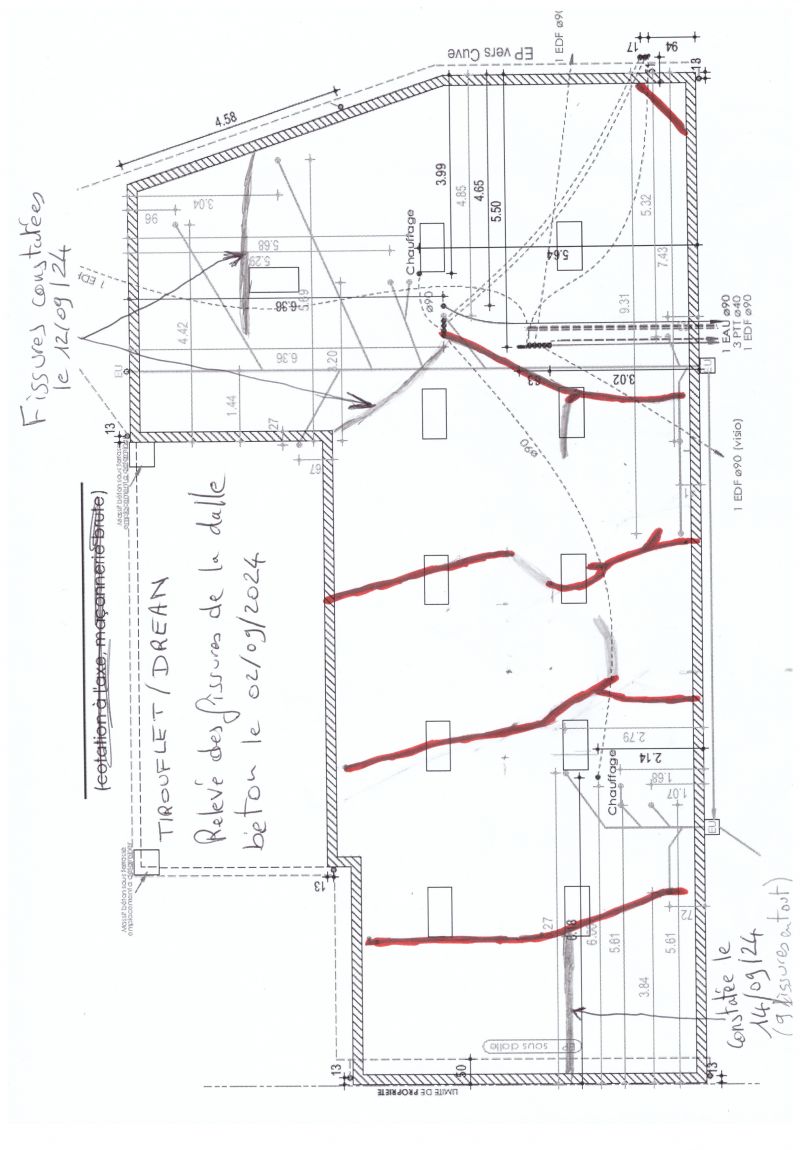 EP vers Cuve
1 EDF ø90
17
94
51
13
4.58
3.99
4.85
4.65
5.50
5.32
7.43
5.64
9.31
Chauffage
3.04
96
5.68
5.29
6.36
4.42
6.36
3.20
1.44
27
67
ø90
1 EDF
EU
63
3.02
1 EAU ø90
3 PTT ø40
1 EDF ø90
EU
1 EDF ø90 (visio)
ø90
13
Fissures constatées
le 12/09/24
(cotation à l'axe, maçonnerie brute)
TIROUFLET / DREAN
Relevé des fissures de la dalle
béton le 02/09/2024
Massif béton sous terrasse
emplacement a désigner
Massif béton sous terrasse
emplacement a désigner
13
2.79
2.14
Chauffage
1.68
1.07
EU
72
5.61
5.61
3.84
Constatée le
14/09/24
(9 fissures en tout)
EP sous dalle
50
13
13
LIMITE DE PROPRIETE